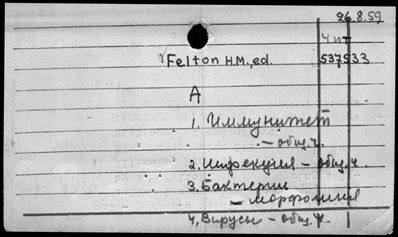 26.8.59
Чит
Felton H.M., ed. 537533
А
1. Иммунитет
– общ. ч.
2. Инфекция – общ. ч.
3. Бактерии
– морфология
4. Вирусы – общ. ч.